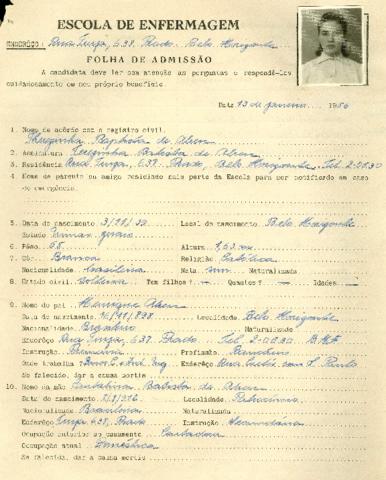 ESCOLA DE ENFERMAGEM
ENDERÊÇO: Rua Turfa, 637. Prado. Belo Horizonte
FOLHA DE ADMISSÃO
A candidata deve ler com atenção as perguntas e respondê-las
cuidadosamente em seu próprio benefício.
Data 13 de janeiro 1956
1. Nome de acôrdo com o registro civil.
Therezinha Baptista de
2. Assinatura Terezinha Batista de
3. Residência Rua Turfa, 637. Prado, Belo Horizonte Tel. 2-0030
4. Nome de parente ou amigo residindo mais perto da Escola para ser notificado em caso
de emergência.
5. Data de nascimento 3/11/39 Local de nascimento Belo Horizonte
Estado Minas Gerais
6. Pêso 58 Altura 1,63
7. Côr Branca Religião Católica
Nacionalidade brasileira Nata sim Naturalizada
8. Estado civil Solteira Tem filhos? Quantos? Idades
9. Nome do pai Henrique
Data do nascimento 16/11/898 Localidade Belo Horizonte
Nacionalidade Brasileiro Naturalizado
Enderêço Rua Turfa, 637 Prado Tel. 2-0030
Instrução Primária Profissão
Onde trabalha? Enderêço Rua
Se falecido, dar a causa mortis
10. Nome da mãe Batista de
Data do nascimento Localidade
Nacionalidade Brasileira Naturalizada
Enderêço Turfa, 637, Prado Instrução Secundária
Ocupação anterior ao casamento
Ocupação atual doméstica
Se falecida, dar a causa mortis